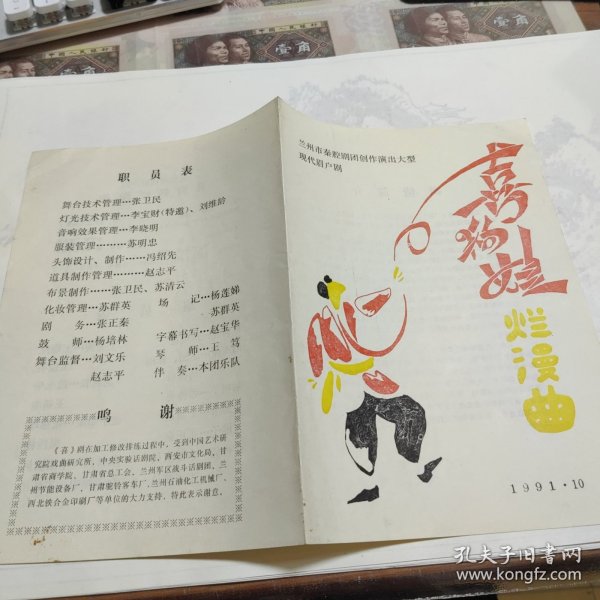 中国人民银行
壹角
壹角
壹角
职员表
舞台技术管理…张卫民
灯光技术管理…李宝财(特邀)、刘维龄
音响效果管理…李晓明
服装管理………苏明忠
头饰设计、制作……冯绍先
道具制作管理………赵志平
布景制作……张卫民、苏清云
化妆管理…苏群英 场记…杨莲娣
苏群英
剧务…张正秦
鼓师…杨培林 字幕书写…赵宝华
舞台监督…刘文乐 琴师…王笃
赵志平 伴奏…本团乐队
鸣谢
《喜》剧在加工修改排练过程中，受到中国艺术研
究院戏曲研究所、中央实验话剧院，西安市文化局，甘
肃省商学院、甘肃省总工会，兰州军区战斗话剧团，兰
州节能设备厂，甘肃驼铃客车厂，兰州石油化工机械厂，
西北铁合金印刷厂等单位的大力支持，特此表示谢意。
兰州市秦腔剧团创作演出大型
现代眉户剧
喜狗娃
烂漫曲
1991·10
孔夫子旧书网
www.kongfz.com